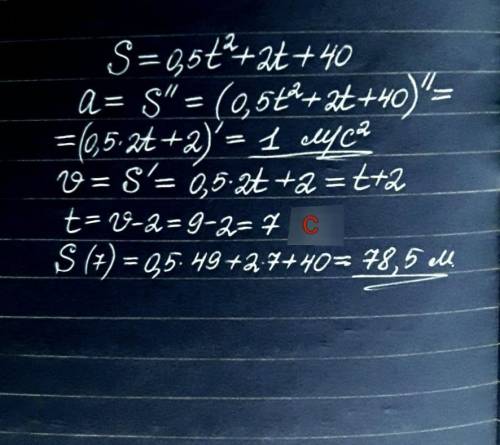 S = 0,5t² + 2t + 40
a = S'' = (0,5t² + 2t + 40)'' =
= (0,5·2t + 2)' = 1 м/с²
v = S' = 0,5·2t + 2 = t + 2
t = v - 2 = 9 - 2 = 7 С
S(7) = 0,5·49 + 2·7 + 40 = 78,5 м.